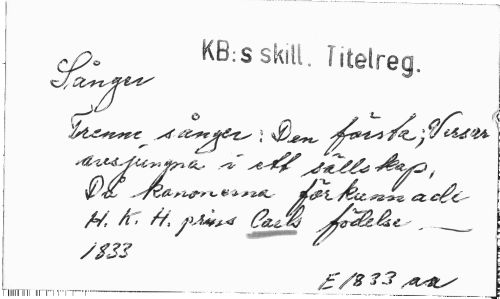 KB:s skill. Titelreg.
Sånger
Trenne sånger: Den första; Verser
avsjungna i ett sällskap,
Då kanonerna förkunnade
H. K. H. prins Carls födelse —
1833
E 1833 aa